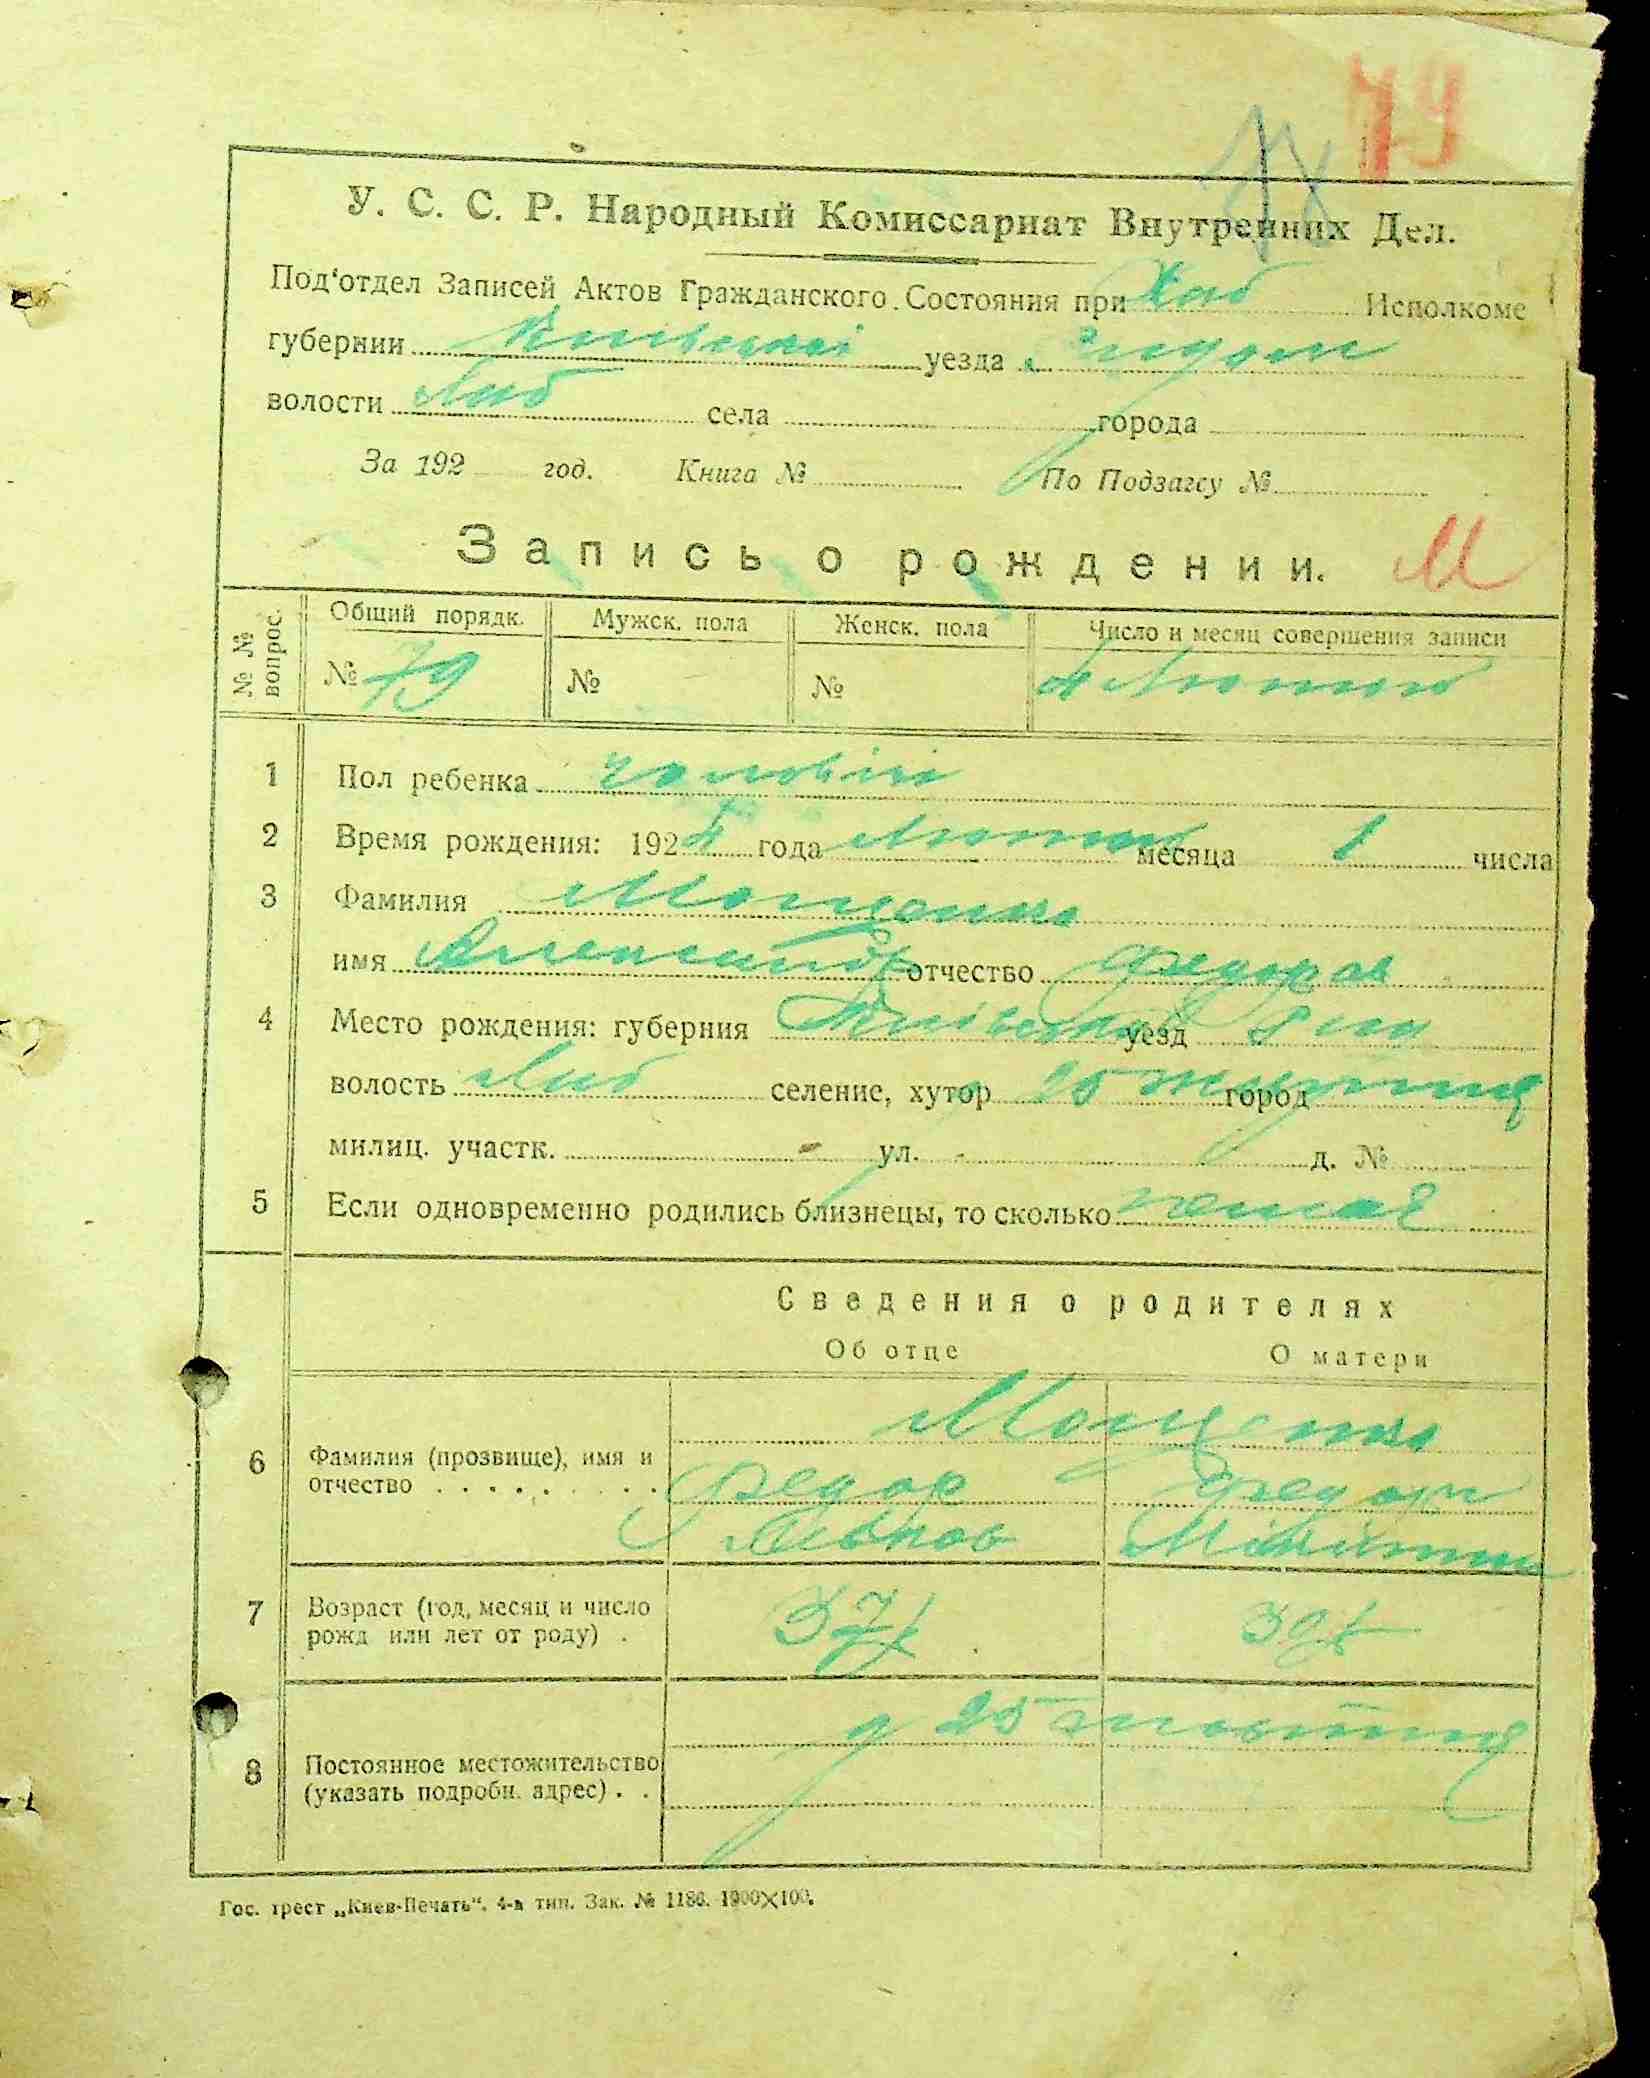 79
У. С. С. Р. Народный Комиссариат Внутренних Дел.
Под‘отдел Записей Актов Гражданского Состояния при Хаб Исполкоме
губернии Київської уезда
волости Хаб села города
За 192 год. Книга № По Подзагсу №
Запись о рождении. М
№№ вопрос. Общий порядк. Мужск. пола Женск. пола Число и месяц совершения записи
№ 79 № № 4 Лютого
1 Пол ребенка чоловічі
2 Время рождения: 1924 года Лютого месяца 1 числа
3 Фамилия Мощенко
имя Александр отчество Федоров
4 Место рождения: губерния Київська уезд
волость Хаб селение, хутор город
милиц. участк. ул. д. №
5 Если одновременно родились близнецы, то сколько немає
Сведения о родителях
Об отце О матери
Мощенко
6 Фамилия (прозвище), имя и
отчество Федор
Левков
7 Возраст (год, месяц и число
рожд или лет от роду) . 37 39
8 Постоянное местожительство
(указать подробн. адрес) . .
Гос. трест „Киев-Печать“. 4-я тип. Зак. № 1186. 1900×100.